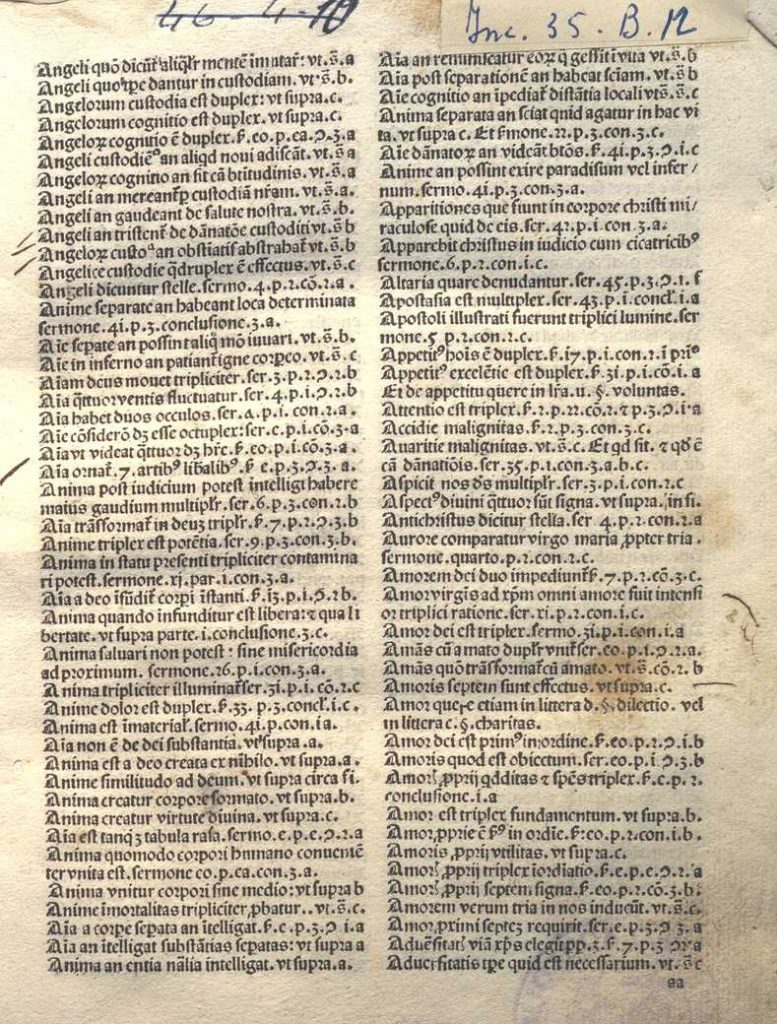 46-4-10
Inc. 35. B. 12
Angeli quõ dicũt᷑ aliq̃lr mentẽ ĩmutar᷑: vt.s̃.a
Angeli quo tp̃e dantur in custodiam. vt.s̃.b.
Angelorum custodia est duplex: vt supra.c.
Angelorum cognitio est duplex. vt supra.c.
Angeloꝝ cognitio ẽ duplex. ẽo.p.ca.ꝯ.3.a
Angeli custodiẽ an aliqd noui adiscãt. vt.s̃ a
Angeloꝝ cognitio an sit cã btĩtudinis. vt.s̃.a
Angeli an mereant᷑ ꝑ custodiã nr̃am. vt.s̃.a.
Angeli an gaudeant de salute nostra. vt.s̃.b.
Angeli an tristent᷑ de dãnatõe custoditi vt.s̃ b
Angeloꝝ custoᵃ an obstiatis abstrahat᷑ vt.s̃.b
Angelice custodie q̃druplex ẽ effectus. vt.s̃.c
Angeli dicuntur stelle. sermo.4.p.2.cõ.2.a.
Anime separate an habeant loca determinata
sermone.4i.p.3.conclusione.3.a.
Aĩe sepate an possint aliq̃ mõ iuuari. vt.s̃.b.
Aĩe in inferno an patiant᷑ igne corp̃eo. vt.s̃.c
Aĩam deus mouet tripliciter. ser.3.p.2.ꝯ.2.b
Aĩa q̃ttuor ventis fluctuatur. ser.4.p.i.ꝯ.2.b
Aĩa habet duos occulos. ser.a.p.i.con.2.a.
Aĩe cõsiderõ dꝫ esse octuplex: ser.e.p.i.cõ.3.a
Aĩa vt videat q̃ttuor dꝫ hr̃e. eo.p.i.cõ.3.a.
Aĩa ornat᷑.7.artibꝰ libalibꝰ. e.p.3.ꝯ.3.a.
Anima post iudicium potest intelligi habere
maius gaudium multiplr̃. ser.6.p.3.con.2.b
Aĩa trãsformat᷑ in deuꝫ triplr̃. 7.p.2.ꝯ.3.b
Anime triplex est potẽtia. ser.9.p.3.con.3.b.
Anima in statu presenti tripliciter contamina
ri potest. sermone.xi.par.1.con.3.a.
Aĩa a deo ĩfũdit᷑ corpi ĩstanti. i3.p.i.ꝯ.2.b.
Anima quando infunditur est libera: ⁊ qua li
bertate. vt supra parte.i.conclusione.3.c.
Anima saluari non potest: sine misericordia
ad proximum. sermone.26.p.i.con.3.a.
Anima tripliciter illuminat᷑. ser.3i.p.i.cõ.2.c
Anime dolor est duplex. 33.p.3.concl̃.i.c.
Anima est ĩmaterial᷑. sermo.4i.p.con.ia.
Aĩa non ẽ de dei substantia. vt supra.a.
Anima est a deo creata ex nihilo. vt supra.a.
Anime similitudo ad deum. vt supra circa fi.
Anima creatur corpore formato. vt supra.b.
Anima creatur virtute diuina. vt supra.c.
Aĩa est tanqꝫ tabula rasa. sermo.e.p.e.ꝯ.2.a
Anima quomodo corpori humano conuenıẽ
ter vnita est. sermone eo.p.ca.con.3.a.
Anima vnitur corpori sine medio: vt supra b
Anime ĩmortalitas tripliciter ꝓbatur..vt.s̃.c.
Aĩa a corpe sepata an ĩtelligat. e.p.3.ꝯ i.a
Aĩa an ĩtelligat substãtias sepatas: vt supra a
Anima an entia nãlia intelligat. vt supra.a.
Aĩa an reminiscatur eoꝝ q̃ gessit ĩ vita vt.s̃.b
Aĩa post separationẽ an habeat sciam. vt.s̃ b
Aĩe cognitio an ĩpediat᷑ distãtia locali vt s̃.b.
Anima separata an sciat quid agatur in hac vi
ta. vt supra c. Et mone.22.p.3.con.3.c.
Aĩe dãnatoꝝ an videãt btõs. 4i.p.3.ꝯ.i.c
Anime an possint exire paradisum vel infer/
num. sermo.4i.p.3.con.3.a.
Apparitiones que fiunt in corpore christi mi/
raculose quid de eis. ser.42.p.i.con.3.a.
Apparebit christus in iudicio cum cicatricibꝰ
sermone.6.p.2.con.i.c.
Altaria quare denudantur. ser.45.p.3.ꝯ.i. f
Apostasia est multiplex. ser.43.p.i.concl̃.i.a
Apostoli illustrati fuerunt triplici lumine. ser
mone.5 p.2.con.2.c.
Appetitꝰ hoĩs ẽ duplex. i7.p.i.con.2.ĩ prĩᵒ
Appetitꝰ excelẽtie est duplex. 3i.p.i.cõ.i.a
Et de appetitu quere in lr̃a.u.§.voluntas.
Attentio est triplex. 2.p.22.cõ.2.⁊ p.3.ꝯ.i.a
Accidie malignitas. 2.p.3.con.3.c.
Auaritie malignitas. vt.s̃.c. Et qd sit. ⁊ qd ẽ
cã dãnatiõis. ser.35.p.i.con.3.a.b.c.
Aspicit nos dñs multiplr̃. ser.3.p.i.con.2.c
Aspectꝰ diuini q̃ttuor sũt signa. vt supra.in fi.
Antichristus dicitur stella. ser 4.p.2.con.2.a
Aurore comparatur virgo maria ꝓpter tria.
sermone.quarto.p.2.con.2.c.
Amorem dei duo impediunt᷑. 7.p.2.cõ.3.c.
Amor virgĩs ad xp̃m omni amore fuit intensi
or triplici ratione. ser.xi.p.2.con.i.c.
Amor dei est triplex. sermo.3i.p.i.con.i.a
Amãs cũ amato duplr̃ vnit᷑. ser.eo.p.i.ꝯ.2.a.
Amãs quõ trãsformat᷑ cũ amato. vt.s̃.cõ.2. b
Amoris septem sunt effectus. vt supra.c.
Amor quere etiam in littera d.§.dilectio. vel
in littera c.§.charitas.
Amor dei est primꝰ in ordine. eo.p.2.ꝯ.i.b
Amoris quod est obiectum. ser.eo.p.i.ꝯ.3.b
Amor᷑ ꝓprij qdditas ⁊ spẽs triplex. e.p.2.
conclusione.i.a
Amor est triplex fundamentum. vt supra.b.
Amor ꝓprie ẽ ꝰ in ordĩe. eo.p.2.con.i.b.
Amoris ꝓprij vtilitas. vt supra.c.
Amor᷑ ꝓprij triplex ĩordiatio. e.p.e.ꝯ.2.a
Amor᷑ ꝓprij septem signa. eo.p.2.cõ.3.b.
Amorem verum tria in nos inducũt. vt.s̃.c.
Amor ꝓximi septeꝫ requirit. ser.e.p.3.ꝯ 3.a
Aduẽsitat᷑ viã xp̃s elegit ꝓp.3. 7.p.3 ꝯ.a
Aduersitatis tp̃e quid est necessarium. vt.s̃ c
aa